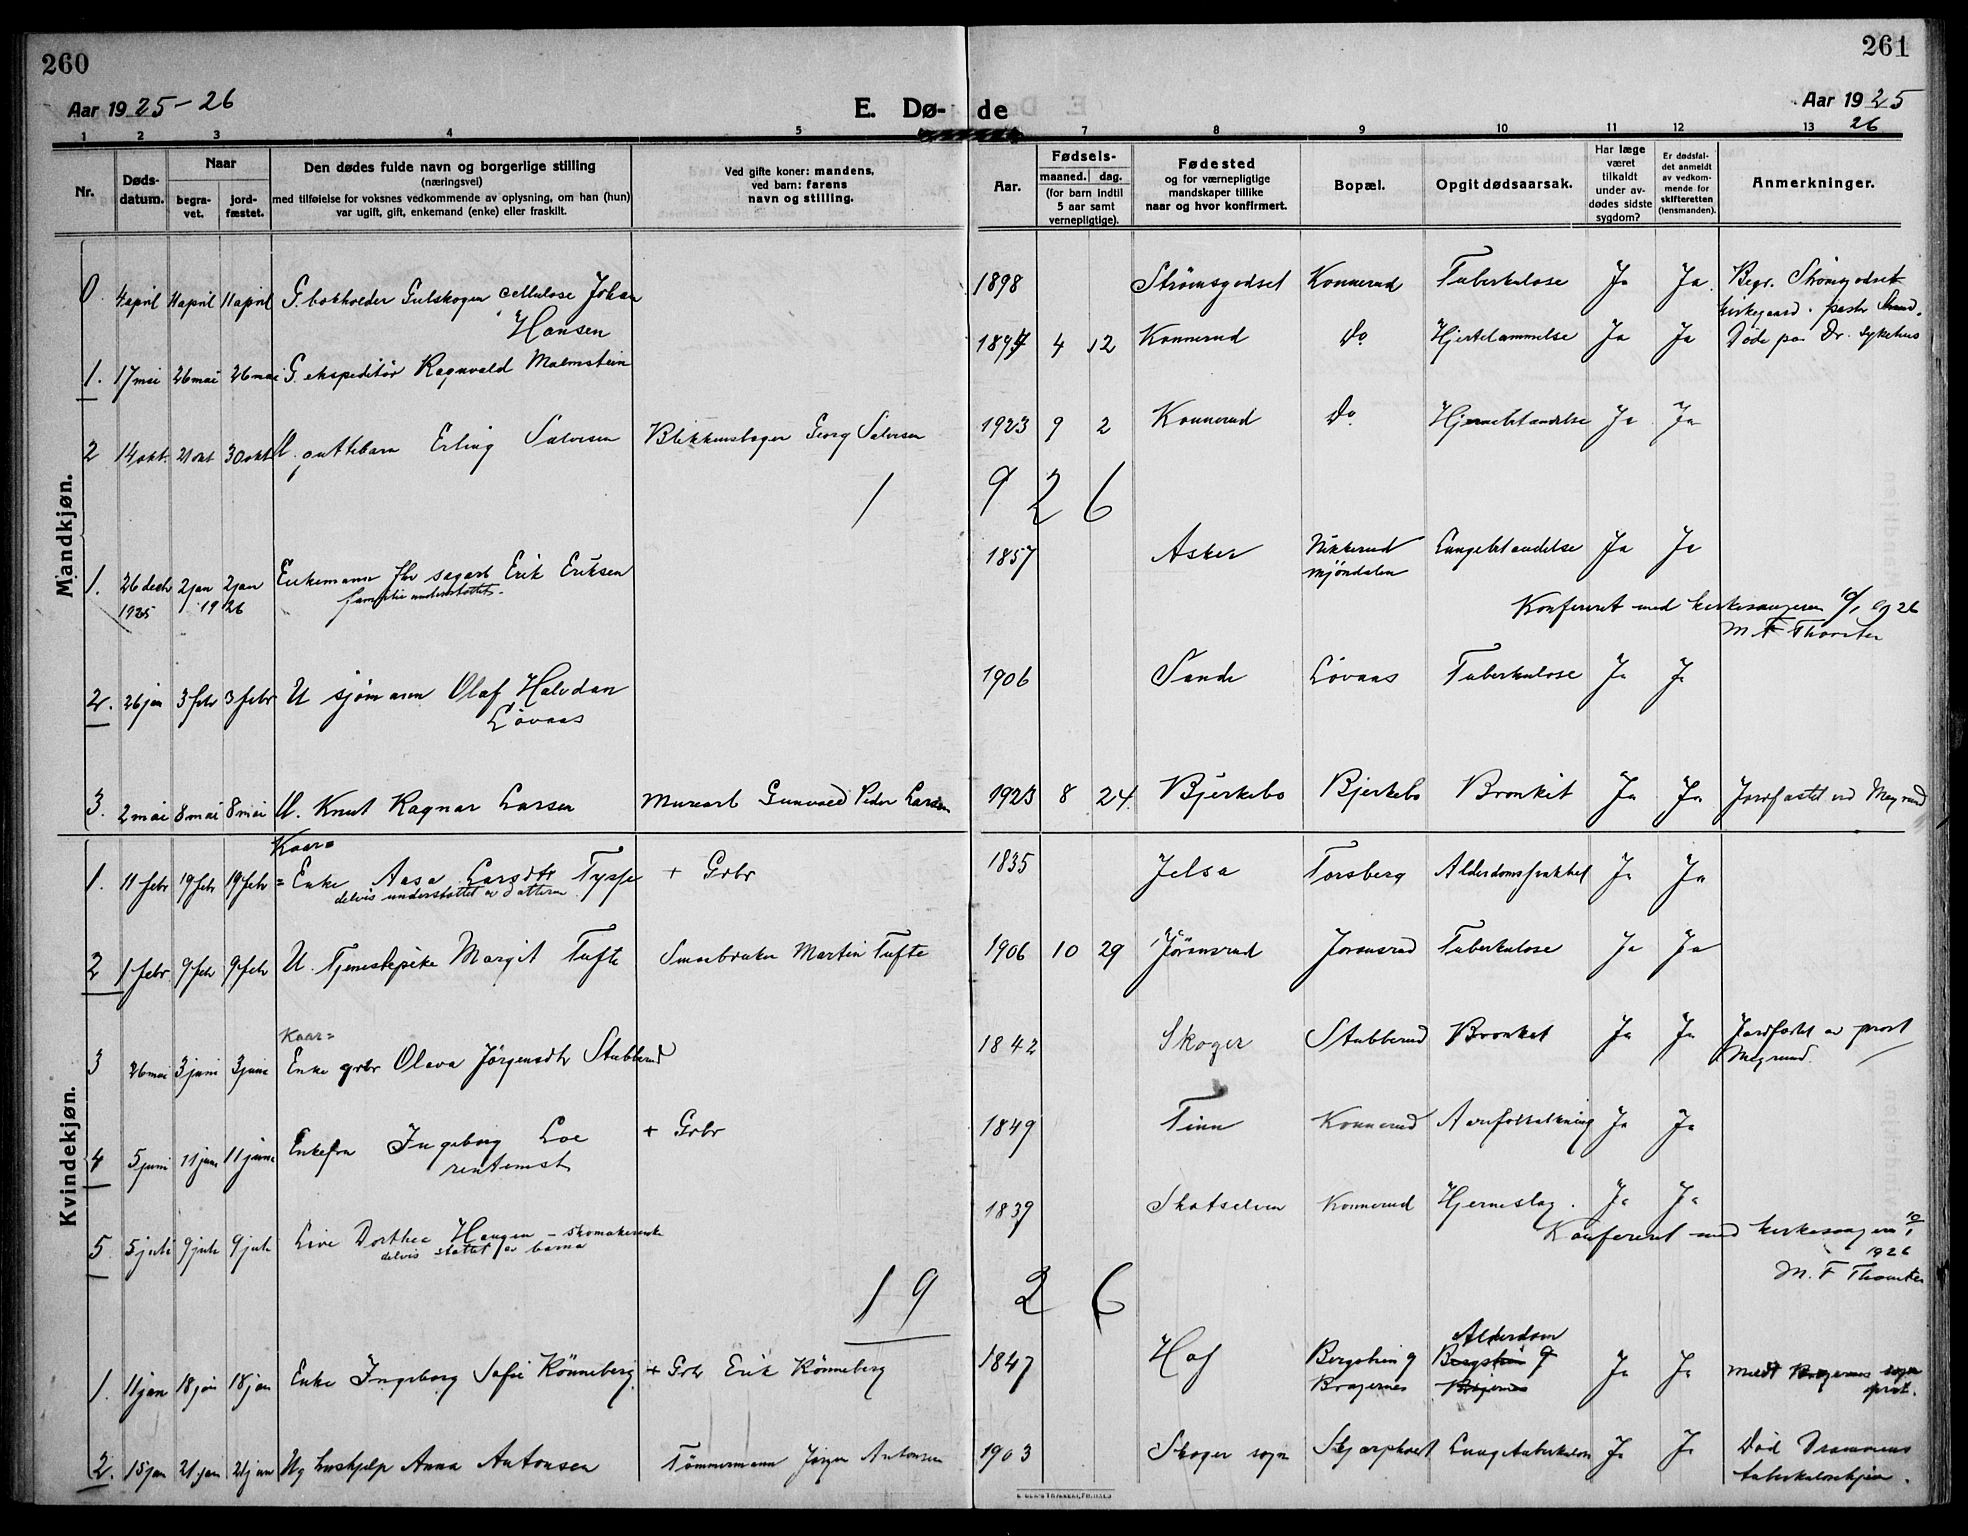 260
261
Aar 1925-26
E. Dø- de
Aar 1925
26
1 2 3 4 5 7 8 9 10 11 12 13
Nr.
Døds-
datum.
Naar
begra-
vet.
jord-
fæstet.
Den dødes fulde navn og borgerlige stilling
(næringsvei)
med tilføielse for voksnes vedkommende av oplysning, om han (hun)
var ugift, gift, enkemand (enke) eller fraskilt.
Ved gifte koner: mandens,
ved barn: farens
navn og stilling.
Aar.
Fødsels-
maaned. dag.
(for barn indtil
5 aar samt
vernepligtige).
Fødested
og for værnepligtige
mandskaper tillike
naar og hvor konfirmert.
Bopæl.
Opgit dødsaarsak.
Har læge
været
tilkaldt
under av-
dødes sidste
sygdom?
Er dødsfal-
det anmeldt
av vedkom-
mende for
skifteretten
(lensmanden).
Anmerkninger.
Mandkjøn.
0. 4 april 11 april 11 april G. bokholder Gulskogen cellulose Johan
Hansen
1898 Strømsgodset Konnerud Tuberkulose Ja Ja Begr. Strømsgodset
kirkegaard.
1. 17 mai 26 mai 26 mai G. ekspeditør Ragnvald Malmstein
4 12 Konnerud Do Hjertelammelse Ja Ja Døde paa Dr. sykehus
2 14 okt. 21 okt 30 okt U. guttebarn Erling Salvesen Blikkenslager Georg Salvesen
1923 9 2 Konnerud Do Hjernebetændelse Ja Ja
1926
1. 26 decbr 2 jan 2 jan Enkemann fhv sagarb Erik Eriksen
1925 1926 familie understøttet.
1857 Asker Mjøndalen Lungebetændelse Ja Ja
Konferert med kirkesangeren 10/1 og 26
M F Thorsten
2. 26 jan 3 febr 3 febr U sjømann Olaf Halvdan
Løvaas
1906 Sande Løvaas Tuberkulose Ja Ja
3. 2 mai 8 mai 8 mai U. Knut Ragnar Larsen Murearb Gunvald Peder Larsen
1923 8 24. Bjerkebo Bjerkebo Bronkit Ja Ja Jordfæstet ved
Kvindekjøn.
Kaar=
1. 11 febr 19 febr 19 febr = Enke Aasa Larsdtr Tysse + Grbr
delvis understøttet av datteren
1835 Jelsa Torsberg Alderdomssvakhet Ja Ja
2 1 febr 9 febr 9 febr U. Tjenestepike Margit Tufte Smaabruker Martin Tufte
1906 10 29 Jøransrud Joransrud Tuberkulose Ja Ja
Kaar=
3 26 mai 3 juni 3 juni Enke grbr Olava Jørgensdtr Stubberud
1842 Skoger Stubberud Bronket Ja Ja Jordfæstet av prost
4 5 juni 11 juni 11 juni Enkefru Ingeborg Loe + Grbr
rentenist
1849 Tinn Konnerud Aareforkalkning Ja Ja
5. 5 juli 9 juli 9 juli Live Dorthea Haugen - skomakerenke
delvis støttet av barna
1839 Skotselven Konnerud Hjerneslag. Ja Ja
Konferert med kirkesangeren 10/1
1926
M. F Thorsten
1926
1. 11 jan 18 jan 18 jan Enke Ingeborg Sofie Rönneberg + Grbr Erik Rönneberg
1847 Hof Bergstien 9
Bragernes
Alderdom
Bergstien 9
Bragernes
Ja Ja meldt Bragernes sogne
prst.
2. 15 jan 21 jan 21 jan Ug hushjelp Anna Antonsen Tömmermann Jörgen Antonsen
1903 Skoger sogn Lungetuberkulose Ja Ja Død Drammens
tuberkulosehjem.